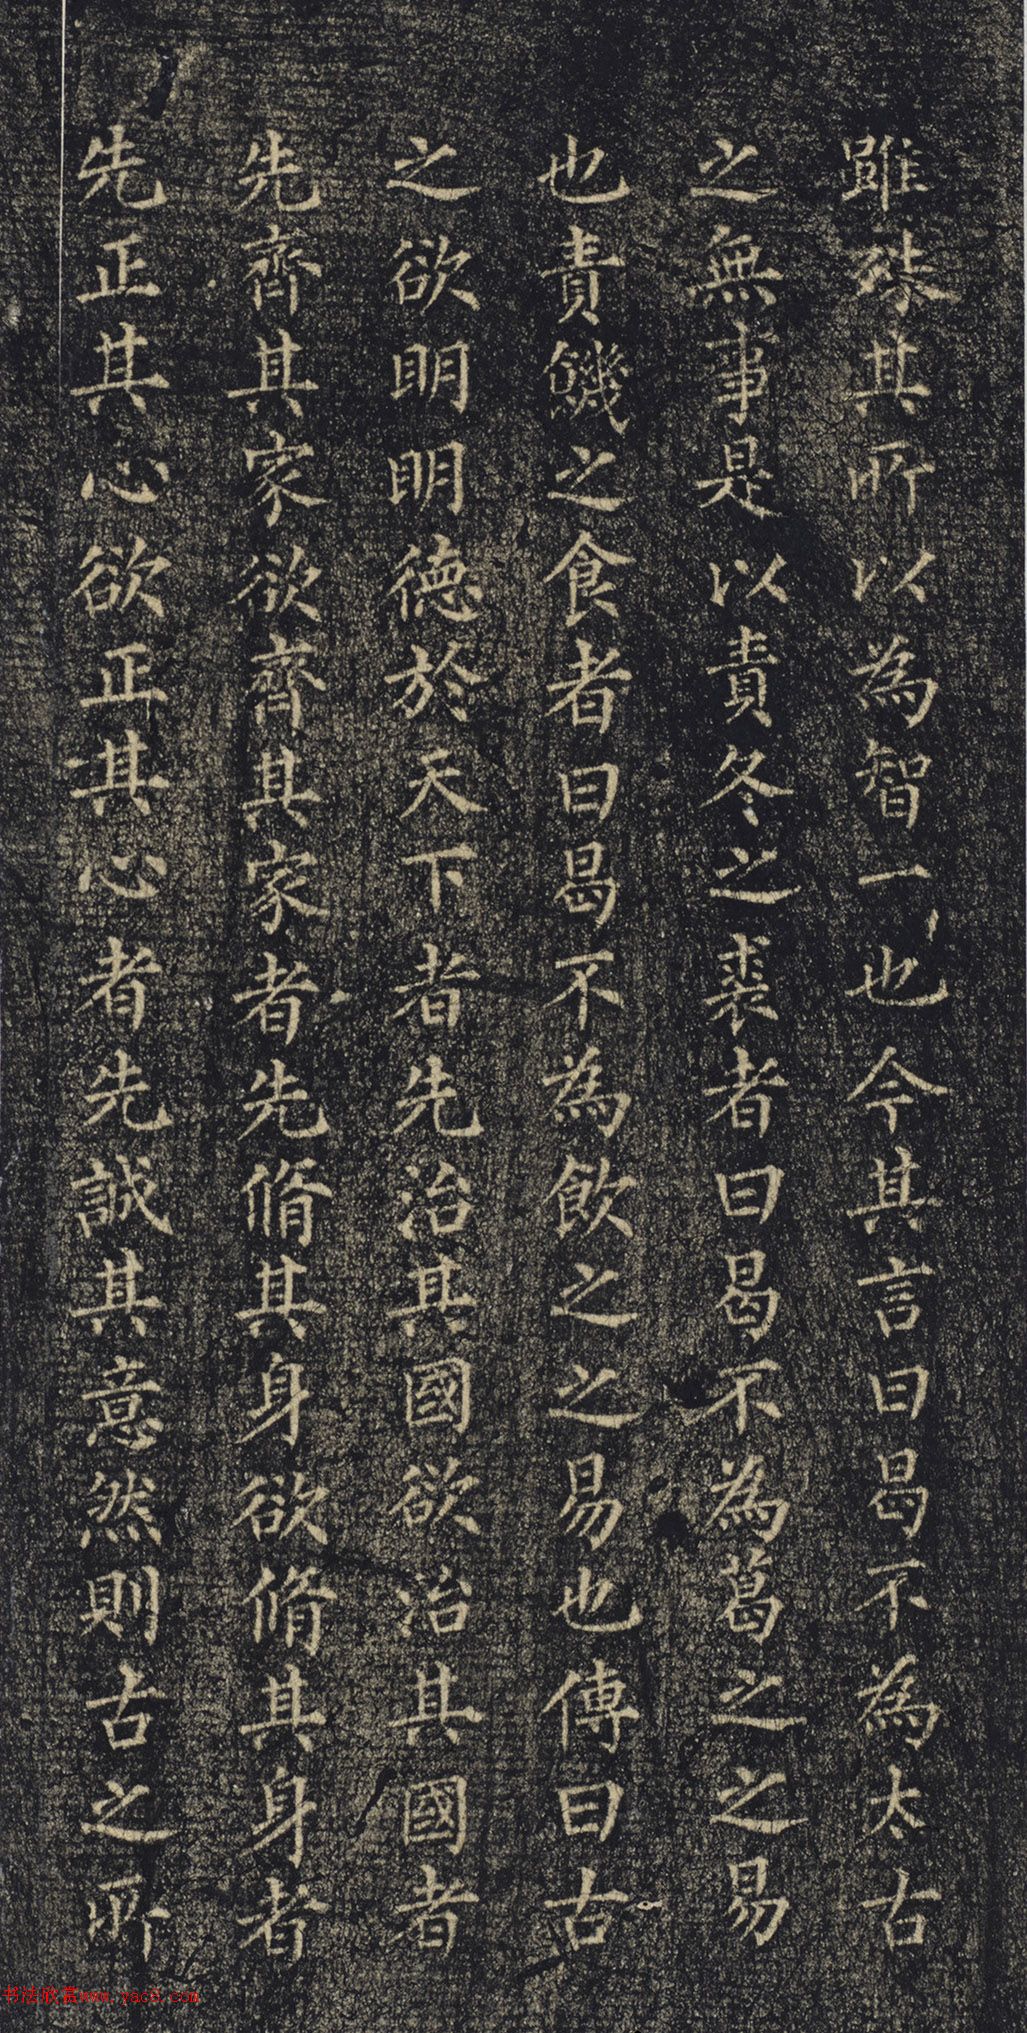 雖殊其所以為智一也今其言曰曷不為太古
之無事是以責冬之裘者曰曷不為葛之之易
也責饑之食者曰曷不為飲之之易也傳曰古
之欲明明德於天下者先治其國欲治其國者
先齊其家欲齊其家者先脩其身欲脩其身者
先正其心欲正其心者先誠其意然則古之所
书法欣赏www.yac8.com